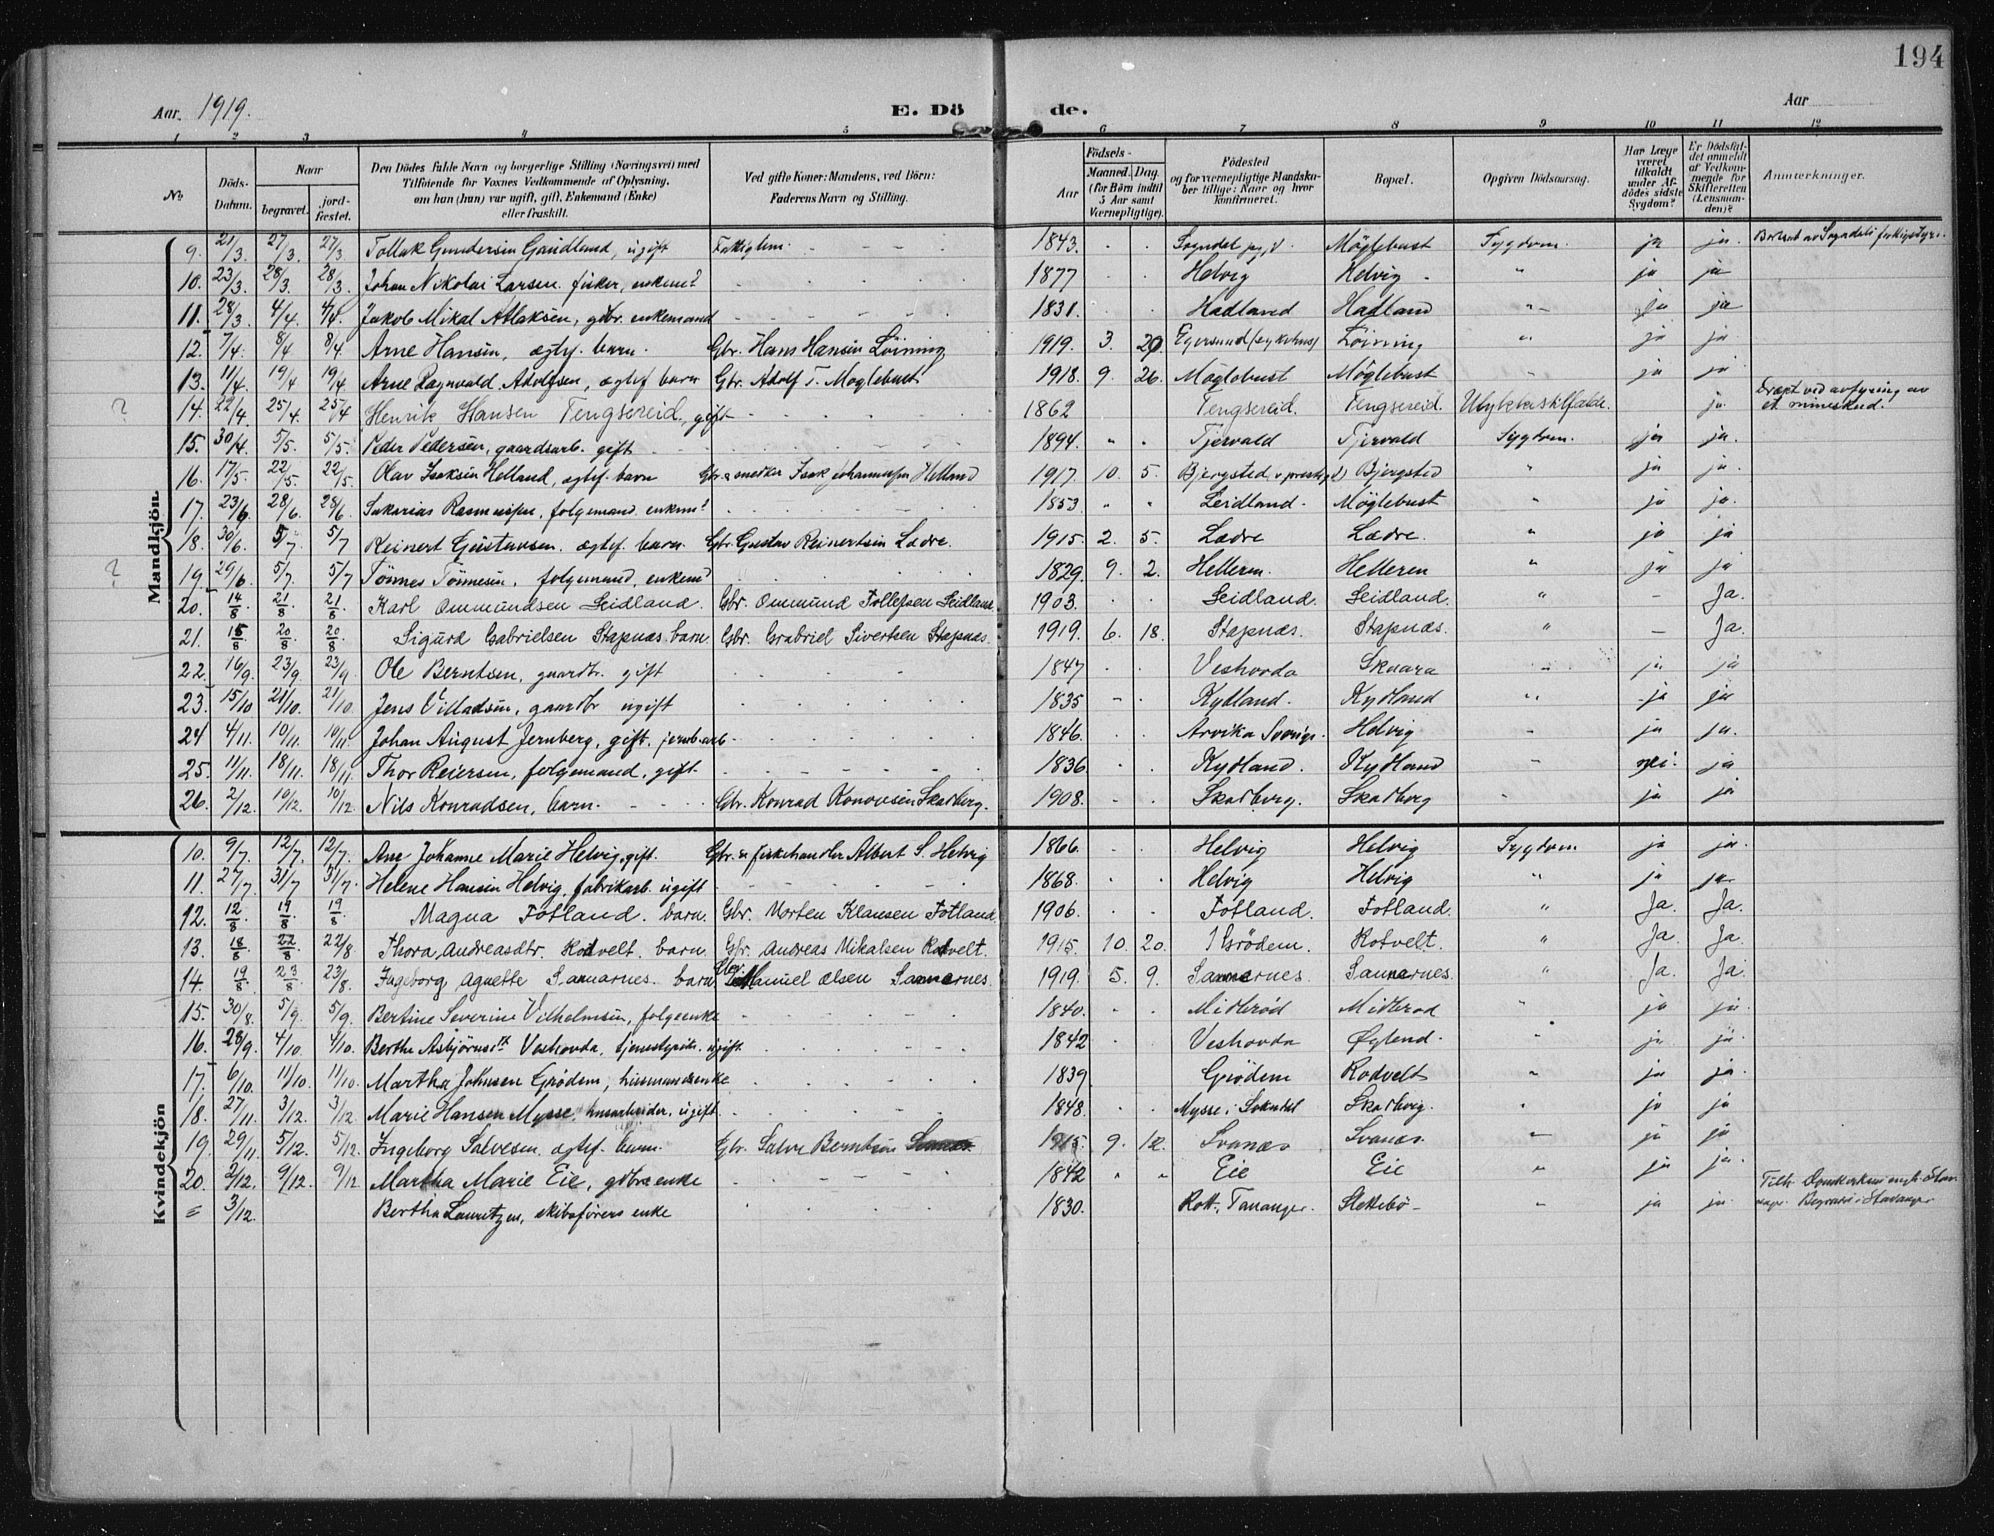 194
Aar 1919. E. Dö de. Aar
1 2 3 4 5 6 7 8 9 10 11 12
No. Döds-Datum. Naar begravet. jordfæstet. Den Dödes fulde Navn og borgerlige Stilling (Næringsvei) med Tilföiende for Voxnes Vedkommende af Oplysning, om han (hun) var ugift, gift, Enkemand (Enke) eller fraskilt. Ved gifte Koner: Mandens, ved Börn: Faderens Navn og Stilling. Födsels- Aar Maaned. Dag. (for Börn indtil 5 Aar samt Værnepligtige). Födested og for værnepligtige Mandskaber tillige: Naar og hvor konfirmeret. Bopæl. Opgiven Dödsaarsag. Har Læge været tilkaldt under Afdödes sidste Sygdom? Er Dödsfaldet anmeldt af Vedkommende for Skifteretten (Lensmanden)? Anmærkninger.
Mandkjön
9. 21/3 27/3. 27/3. Tollak Gundersen Gaudland, ugift Fattiglem. 1843. Sogndal Møglebust Sygdom. ja ja.
10. 23/3. 28/3. 28/3. Johan Nikolai Larsen. fisker, enkem? 1877 Helvig Helvig " ja ja
11. 28/3 4/4. 4/4. Jakob Mikal Atlaksen, gdbr. enkemand 1831. Hadland Hadland " ja ja
12. 7/4. 8/4 8/4. Arne Hansen, ægtef. barn. Gbr. Hans Hansen Løining 1919. 3. 20. Egersund (sykehus) Løining " ja ja
13. 11/4. 19/4 19/4. Arne Ragnvald Adolfsen, ægtef barn Gbr. Adolf T. Møglebust 1918. 9. 26. Møglebust Møglebust " ja ja
? 14. 22/4. 25/4. 25/4 Henrik Hansen Tengsereid, gift 1862 Tengsereid. Tengsereid. Ulykkestilfælde. ja. Dræpt ved avfyring av et mineskud.
15. 30/4. 5/5. 5/5. Peder Pedersen, gaardsarb. gift 1894. " " Tjervald Tjervald Sygdom. ja ja.
16. 17/5. 22/5. 22/5. Olav Isaksen Helland, ægtef. barn Gbr. & snedker Isak Johannessen Helland 1917. 10. 5. Bjergsted Bjergsted " ja ja.
17. 23/6. 28/6. 28/6. Sakarias Rasmussen, folgemand. enkem? 1853 " " Leidland. Møglebust " ja ja.
18. 30/6. 5/7. 5/7 Reinert Gustavsen. ægtef. barn Gbr. Gustav Reinertsen Lædre. 1915. 2. 5. Lædre Lædre. " ja ja
? 19. 29/6. 5/7. 5/7 Tønnes Tønnesen, folgemand, enkem 1829. 9. 2. Helleren. Helleren " ja ja
20. 14/8 21/8 21/8 Karl Ommundsen Leidland. Gbr. Ommund Tollefsen Leidland. 1903. Leidland. Leidland. " - Ja.
21. 15/8 20/8 20/8 Sigurd Gabrielsen Stapnæs. barn Gbr. Gabriel Sivertsen Stapnæs. 1919. 6. 18. Stapnæs. Stapnæs. " - Ja.
22. 16/9. 23/9. 23/9 Ole Berntsen, gaardbr. gift 1847 Veshovda Skaara " ja ja
23. 15/10 21/10. 21/10. Jens Villadsen, gaardbr ugift 1835 Kydland. Kydland " ja ja
24 4/11. 10/11. 10/11. Johan August Jernberg, gift. jernb.arb 1846. Arvika Sverige. Helvig " ja ja.
25. 11/11. 18/11. 18/11. Thor Reiersen, folgemand, gift. 1836 Kydland. Kydland " nei. ja
26. 2/12. 10/12. 10/12 Nils Konradsen, barn. Gbr. Konrad Skarberg. 1908. Skarberg. Skarberg " ja ja
Kvindekjön
10. 9/7. 12/7. 12/7. Ane Johanne Marie Helvig, gift. Gbr. & fiskehandler Albert S. Helvig 1866. Helvig Helvig Sygdom ja ja.
11. 27/7. 31/7 31/7. Helene Hansen Helvig, fabrikarb. ugift 1868. Helvig Helvig " ja ja
12. 12/8 19/8. 19/8 Magna Fotland. barn. Gbr. Morten Klausen Fotland. 1906. Fotland. Fotland. " Ja. Ja.
13. 18/8 22/8 22/8 Thora Andreasdtr. Rodvelt. barn Gbr. Andreas Mikalsen Rodvelt. 1915. 10. 20. Grødem. Rotvelt. " Ja. Ja.
14. 19/8 23/8 23/8. Ingeborg Agnette Sannarnes. barn Manuel Olsen Sannarnes. 1919. 5. 9. Sannarnes. Sannarnes. " Ja. Ja
15. 30/8. 5/9. 5/9. Bertine Severine Vilhelmsen, folgeenke 1840. Midbrød Midbrød " ja ja
16. 28/9. 4/10. 4/10. Berthe Veshovda, tjenestepike. ugift 1842 Veshovda " ja ja
17. 6/10. 11/10. 11/10. Martha Johnsen Grødem, husmandsenke 1839 Grødem Rodvelt " ja ja.
18. 27/11. 3/12. 3/12. Marie Hansen Mysse, husarbeider, ugift 1848. Mysse i Sokndal Skarberg. " ja ja
19. 29/11. 5/12. 5/12. Ingeborg Salvesen, ægtef. barn. Gbr. Salve Berntsen Svanæs 1915. 9. 12. Svanæs Svanæs. " ja ja
20. 2/12. 9/12. 9/12 Martha Marie Eie, gdbr.enke 1842 " " Eie Eie " ja ja.
= 3/12. Bertha Lauritzen, skibsførers enke 1830. Rott, Tananger. Slettebø " ja ja. Begravet i Stavanger